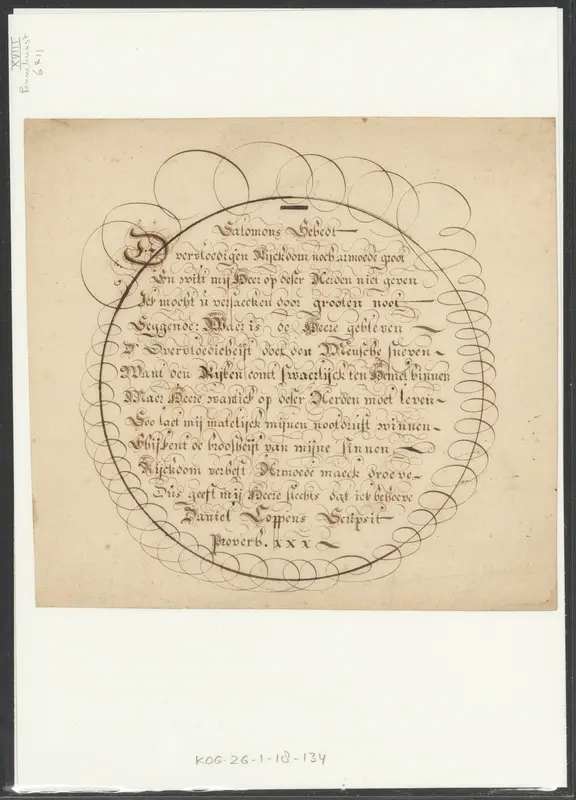 XVIII
Penneckunst
6 x 11
Salomons Gebedt
vervloedigen Rijckdom noch armoede groot
En wilt mij Heer op deser Aerden niet geven
Ick mocht u versaecken door grooten noot
Seggende: Waer is de Heere gebleven
D'Overvloedicheijt doet den Mensche sneven
Want den Rijken comt swaerlijck ten Hemel binnen
Maer Heere want ick op deser Aerden moet leven
Soo laet mij matelijck mijnen nootdrift winnen
de broosheijt van mijne sinnen
Rijckdom verheft Armoede maeckt droeve
Dus geeft mij Heere slechts dat ick behoeve
Daniel Coppens Scripsit
Proverb. xxx
KOG-ZG-1-18-134